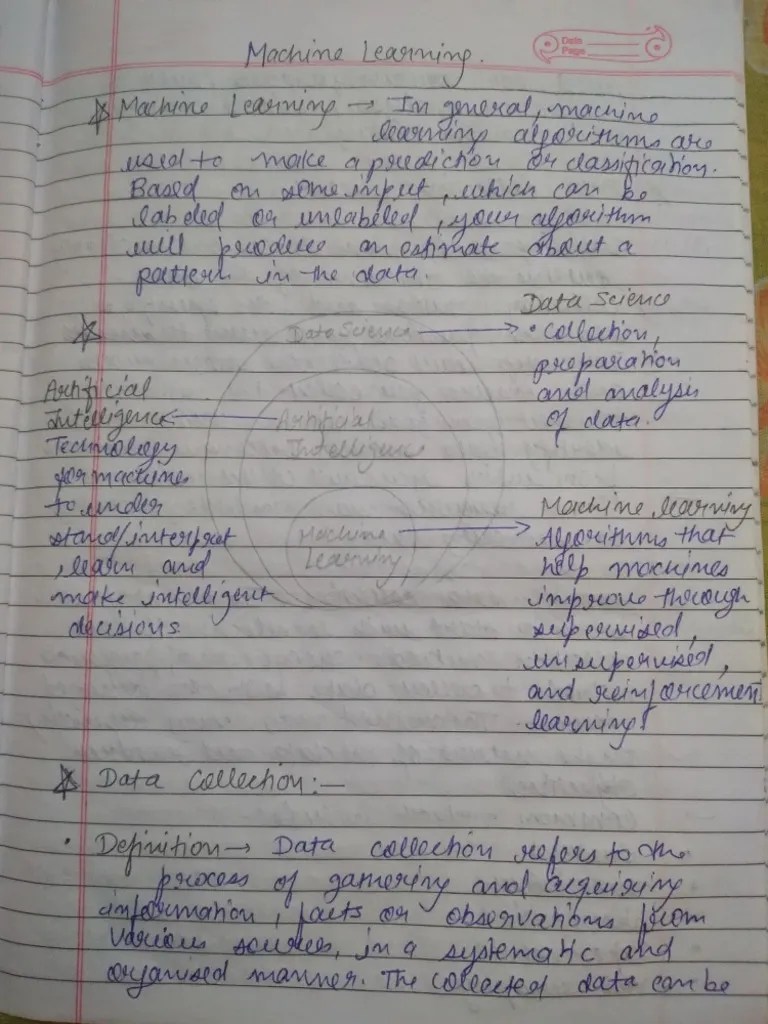 Machine Learning.
Date
Page
Machine Learning → In general, machine
learning algorithms are
used to make a prediction or classification.
Based on some input, which can be
labeled or unlabeled, your algorithm
will produce an estimate about a
pattern in the data.
Data Science
Data Science → • Collection,
preparation
and analysis
of data.
Artificial
Intelligence ← Artificial
Intelligence
Technology
for machines
to under
stand/interpret
, learn and
make intelligent
decisions
Machine
Learning →
Machine learning
Algorithms that
help machines
improve through
supervised,
unsupervised,
and reinforcement
learning!
Data Collection:—
• Definition → Data collection refers to the
process of gathering and acquiring
information, facts or observations from
various sources, in a systematic and
organised manner. The collected data can be